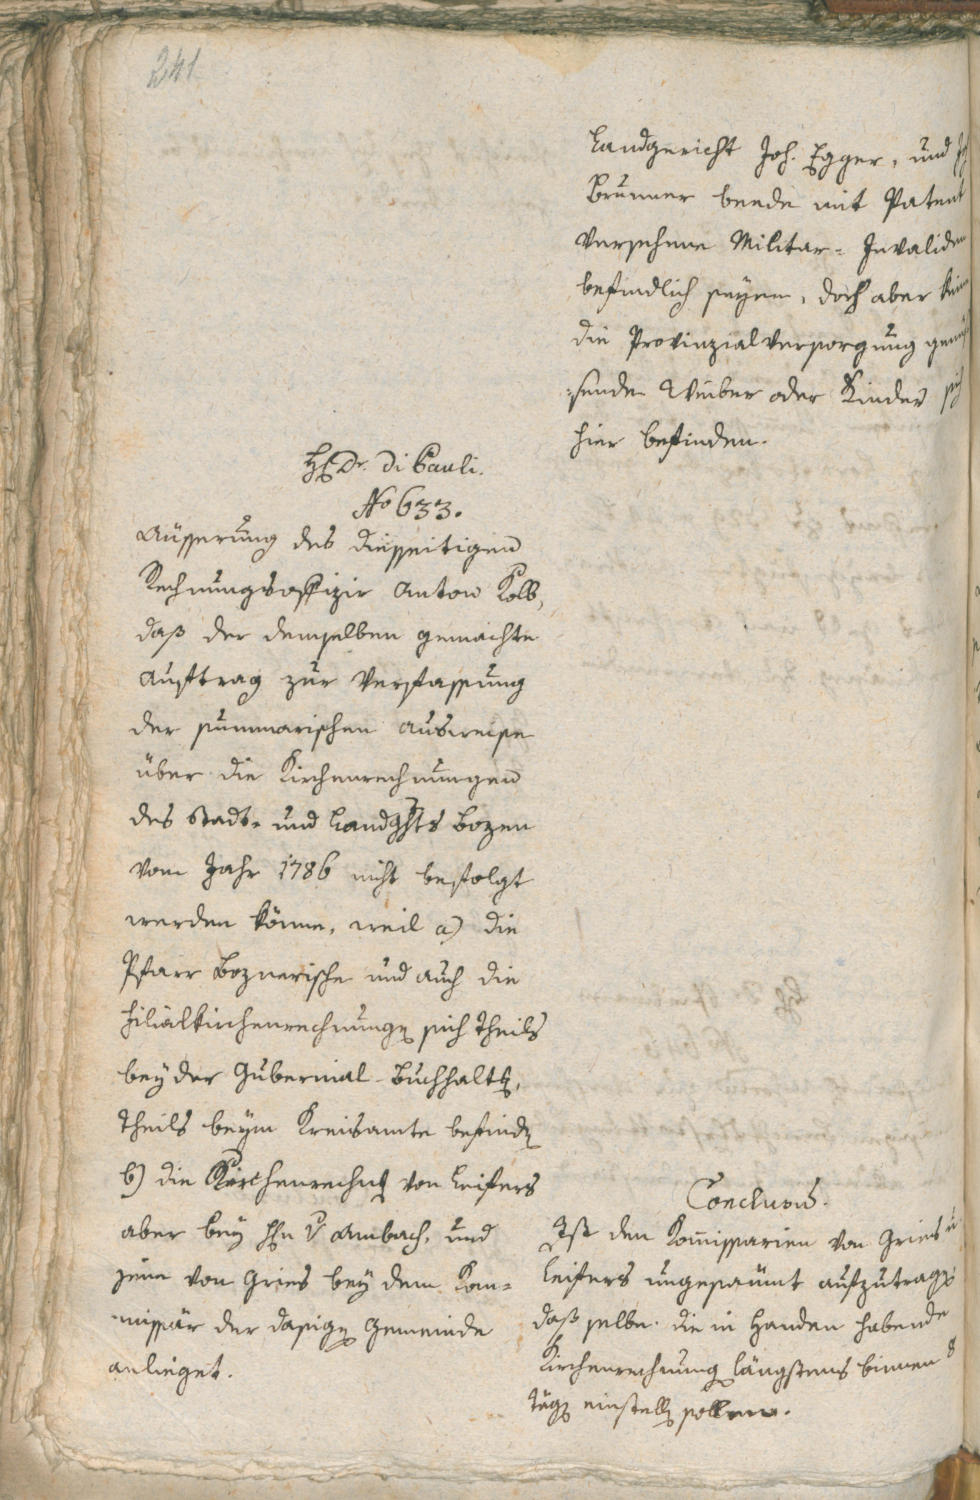 241
Landgericht Joh. Egger, und
Brunner beede mit Patent
versehene Militar- Invaliden
befindlich seyen, doch aber kein
die Provinzialversorgung genüs¬
:sende Weiber oder Kinder sich
hier befinden.
H. Dr. Di Pauli.
No 633.
Äusserung des diesseitigen
Rechnungsoffizir Anton Kolb,
daß der demselben gemachte
Auftrag zur Verfassung
der summarischen Ausweise
über die Kirchenrechnungen
des Stadt- und Landghts Bozen
vom Jahr 1786 nicht befolgt
werden könne, weil a) die
Pfarr Boznerische und auch die
Filialkirchenrechnung sich theils
bey der Gubernial-Buchhaltg,
theils beym Kreisamte befind
b) die Kirchenrechng von Leifers
aber bey Hn v Ambach, und
jene von Gries bey dem Kom=
missär der dasig Gemeinde
anlieget.
Conclusum.
Ist den Kommissarien von Gries u
Leifers ungesäumt aufzutrag
daß selbe die in Handen habende
Kirchenrechnung längstens binnen 8
täg einstell sollen.